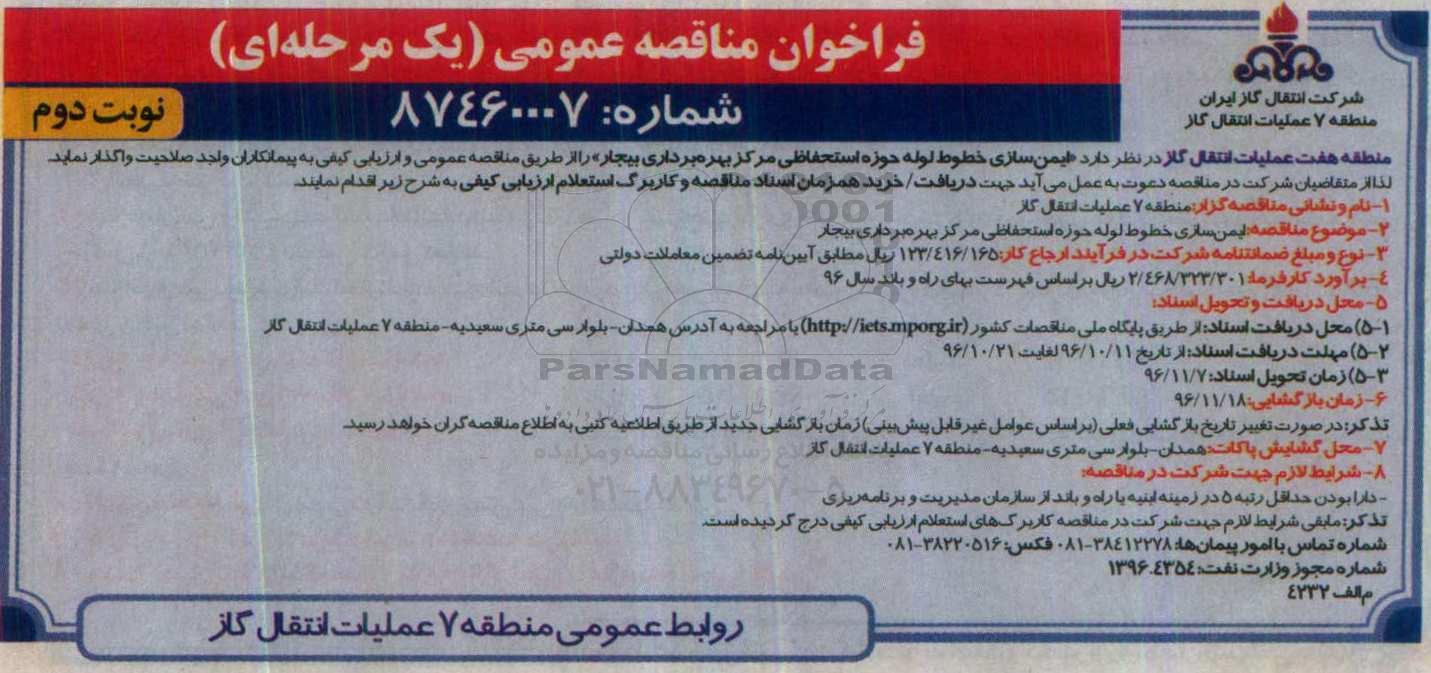 فراخوان مناقصه عمومی (یک مرحله‌ای)
شماره: ۸۷۴۶۰۰۰۷
نوبت دوم
شرکت انتقال گاز ایران
منطقه ۷ عملیات انتقال گاز
منطقه هفت عملیات انتقال گاز در نظر دارد «ایمن‌سازی خطوط لوله حوزه استحفاظی مرکز بهره‌برداری بیجار» را از طریق مناقصه عمومی و ارزیابی کیفی به پیمانکاران واجد صلاحیت واگذار نماید.
لذا از متقاضیان شرکت در مناقصه دعوت به عمل می‌آید جهت دریافت/ خرید همزمان اسناد مناقصه و کاربرگ استعلام ارزیابی کیفی به شرح زیر اقدام نمایند.
۱- نام و نشانی مناقصه‌گزار: منطقه ۷ عملیات انتقال گاز
۲- موضوع مناقصه: ایمن‌سازی خطوط لوله حوزه استحفاظی مرکز بهره‌برداری بیجار
۳- نوع و مبلغ ضمانتنامه شرکت در فرآیند ارجاع کار: ۱۲۳/۴۱۶/۱۶۵ ریال مطابق آیین‌نامه تضمین معاملات دولتی
۴- برآورد کارفرما: ۲/۴۶۸/۳۲۳/۳۰۱ ریال براساس فهرست بهای راه و باند سال ۹۶
۵- محل دریافت و تحویل اسناد:
۵-۱) محل دریافت اسناد: از طریق پایگاه ملی مناقصات کشور (http://iets.mporg.ir) یا مراجعه به آدرس همدان- بلوار سی متری سعیدیه- منطقه ۷ عملیات انتقال گاز
۵-۲) مهلت دریافت اسناد: از تاریخ ۹۶/۱۰/۱۱ لغایت ۹۶/۱۰/۲۱
۵-۳) زمان تحویل اسناد: ۹۶/۱۱/۷
۶- زمان بازگشایی: ۹۶/۱۱/۱۸
تذکر: در صورت تغییر تاریخ بازگشایی فعلی (براساس عوامل غیرقابل پیش‌بینی) زمان بازگشایی جدید از طریق اطلاعیه کتبی به اطلاع مناقصه‌گران خواهد رسید.
۷- محل گشایش پاکات: همدان- بلوار سی متری سعیدیه- منطقه ۷ عملیات انتقال گاز
۸- شرایط لازم جهت شرکت در مناقصه:
- دارا بودن حداقل رتبه ۵ در زمینه ابنیه یا راه و باند از سازمان مدیریت و برنامه‌ریزی
تذکر: مابقی شرایط لازم جهت شرکت در مناقصه کاربرگ‌های استعلام ارزیابی کیفی درج گردیده است.
شماره تماس با امور پیمان‌ها: ۳۸۴۱۲۲۷۸-۰۸۱ فکس: ۳۸۲۲۰۵۱۶-۰۸۱
شماره مجوز وزارت نفت: ۱۳۹۶.۴۳۵۴
م‌الف ۴۲۳۲
روابط عمومی منطقه ۷ عملیات انتقال گاز
ParsNamadData
۰۲۱-۸۸۳۴۹۶۷۰-۵